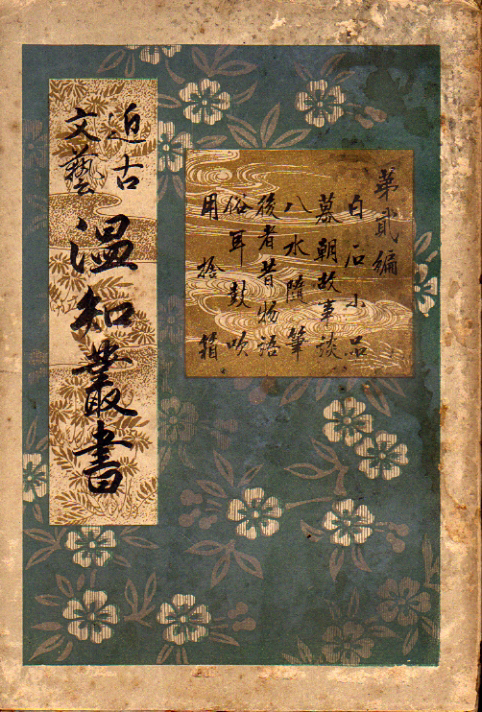 近古
文藝
温知叢書
第貳編
白石小品
幕朝故事談
八水隨筆
後者昔物語
俗耳鼓吹
用捨箱